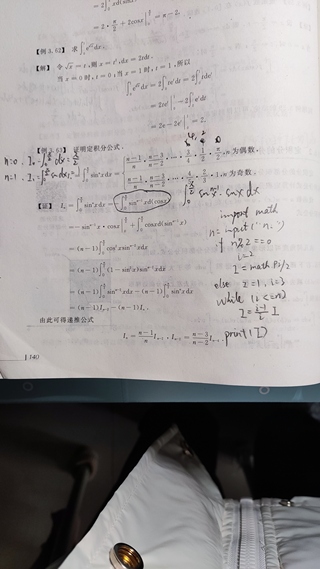 = 2·π/2 + 2cosx|₀^{π/2} = π − 2.
【例 3.62】 求∫₀¹ e^{√x} dx.
【解】 令 √x = t, 则 x = t², dx = 2tdt.
当 x = 0 时, t = 0; 当 x = 1 时, t = 1, 所以
∫₀¹ e^{√x} dx = 2∫₀¹ te^t dt = 2∫₀¹ tde^t
= 2te^t|₀¹ − 2∫₀¹ e^t dt
= 2e − 2e^t|₀¹ = 2.
【例 3.63】 证明定积分公式.
n=0, I₀ = ∫₀^{π/2} dx = π/2
n=1, I₁ = ∫₀^{π/2} sin dx
∫₀^{π/2} sinⁿxdx = { (n−1)/n · (n−3)/(n−2) · … · 3/4 · 1/2 · π/2, n 为偶数,
(n−1)/n · (n−3)/(n−2) · … · 4/5 · 2/3 · 1, n 为奇数.
【证】 Iₙ = ∫₀^{π/2} sinⁿxdx = −∫₀^{π/2} sin^{n−1}xd(cosx)
∫₀^{π/2} sin^{n−1}x · sinx dx
= −sin^{n−1}x · cosx|₀^{π/2} + ∫₀^{π/2} cosxd(sin^{n−1}x)
= (n−1)∫₀^{π/2} cos²xsin^{n−2}xdx
= (n−1)∫₀^{π/2} (1−sin²x)sin^{n−2}xdx
= (n−1)∫₀^{π/2} sin^{n−2}xdx − (n−1)∫₀^{π/2} sinⁿxdx
= (n−1)Iₙ₋₂ − (n−1)Iₙ.
由此可得递推公式
Iₙ = (n−1)/n Iₙ₋₂, Iₙ₋₂ = (n−3)/(n−2) Iₙ₋₄.
import math
n = input("n:")
if n%2 == 0
i=2
I = math.Pi/2
else I=1, i=3
while (i<=n)
I = (i−1)/i I
print(I)
140